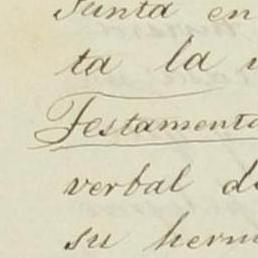 Junta en
ta la
Testamento
verbal de
su herm